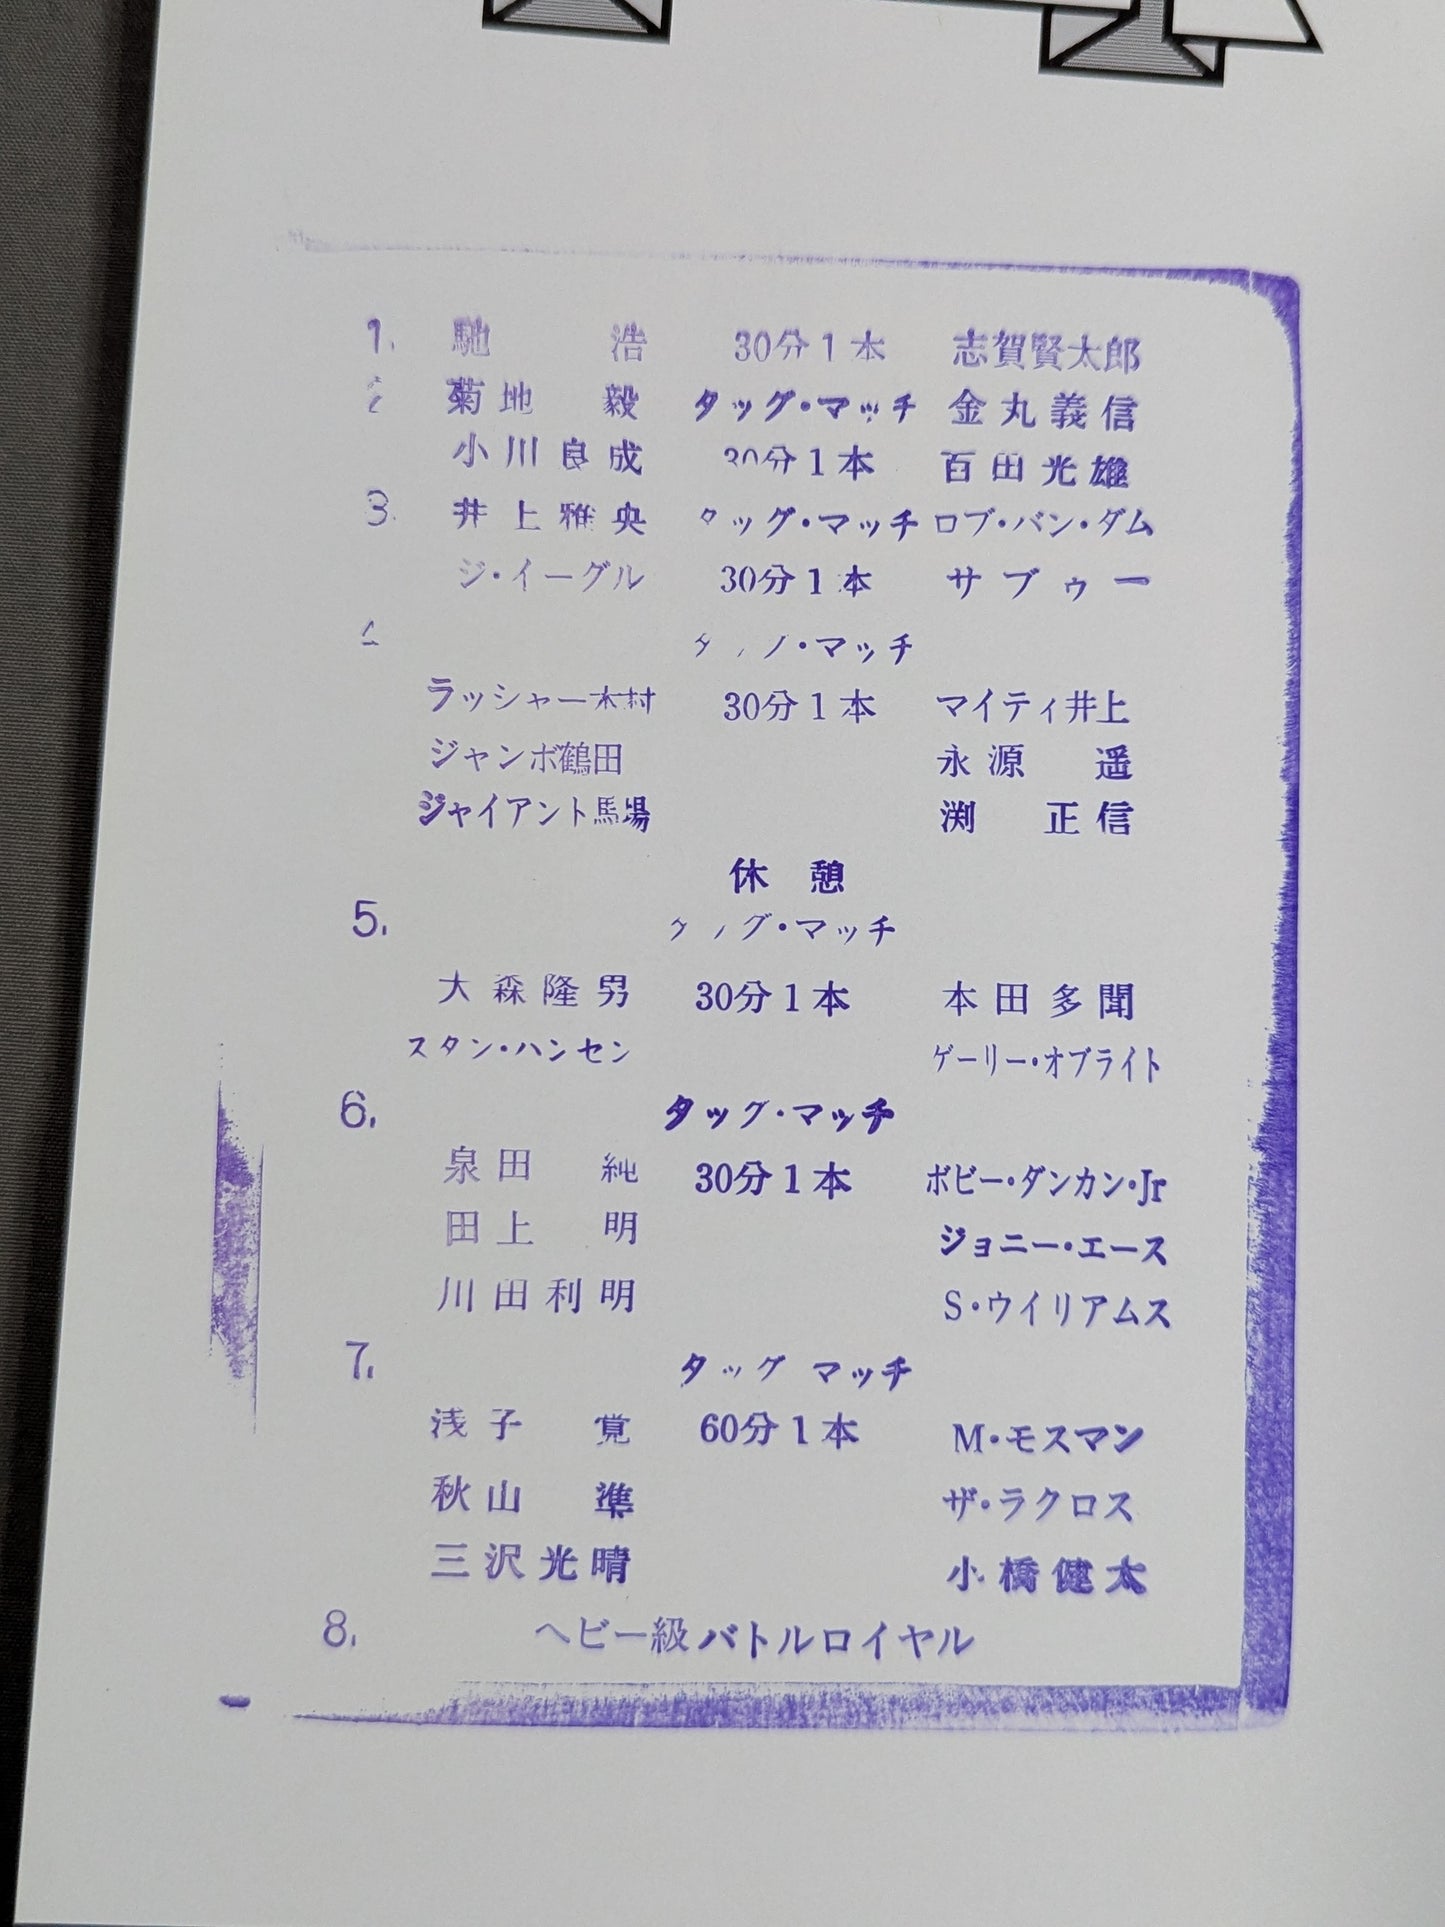 1. 馳 浩 30分1本 志賀賢太郎
2 菊地 毅 タッグ・マッチ 金丸義信
小川良成 30分1本 百田光雄
3. 井上雅央 タッグ・マッチ ロブ・バン・ダム
ジ・イーグル 30分1本 サブゥー
4 タッグ・マッチ
ラッシャー木村 30分1本 マイティ井上
ジャンボ鶴田 永源 遥
ジャイアント馬場 渕 正信
休憩
5. タッグ・マッチ
大森隆男 30分1本 本田多聞
スタン・ハンセン ゲーリー・オブライト
6. タッグ・マッチ
泉田 純 30分1本 ボビー・ダンカン・Jr
田上 明 ジョニー・エース
川田利明 S・ウイリアムス
7. タッグ マッチ
浅子 覚 60分1本 M・モスマン
秋山 準 ザ・ラクロス
三沢光晴 小橋健太
8. ヘビー級バトルロイヤル